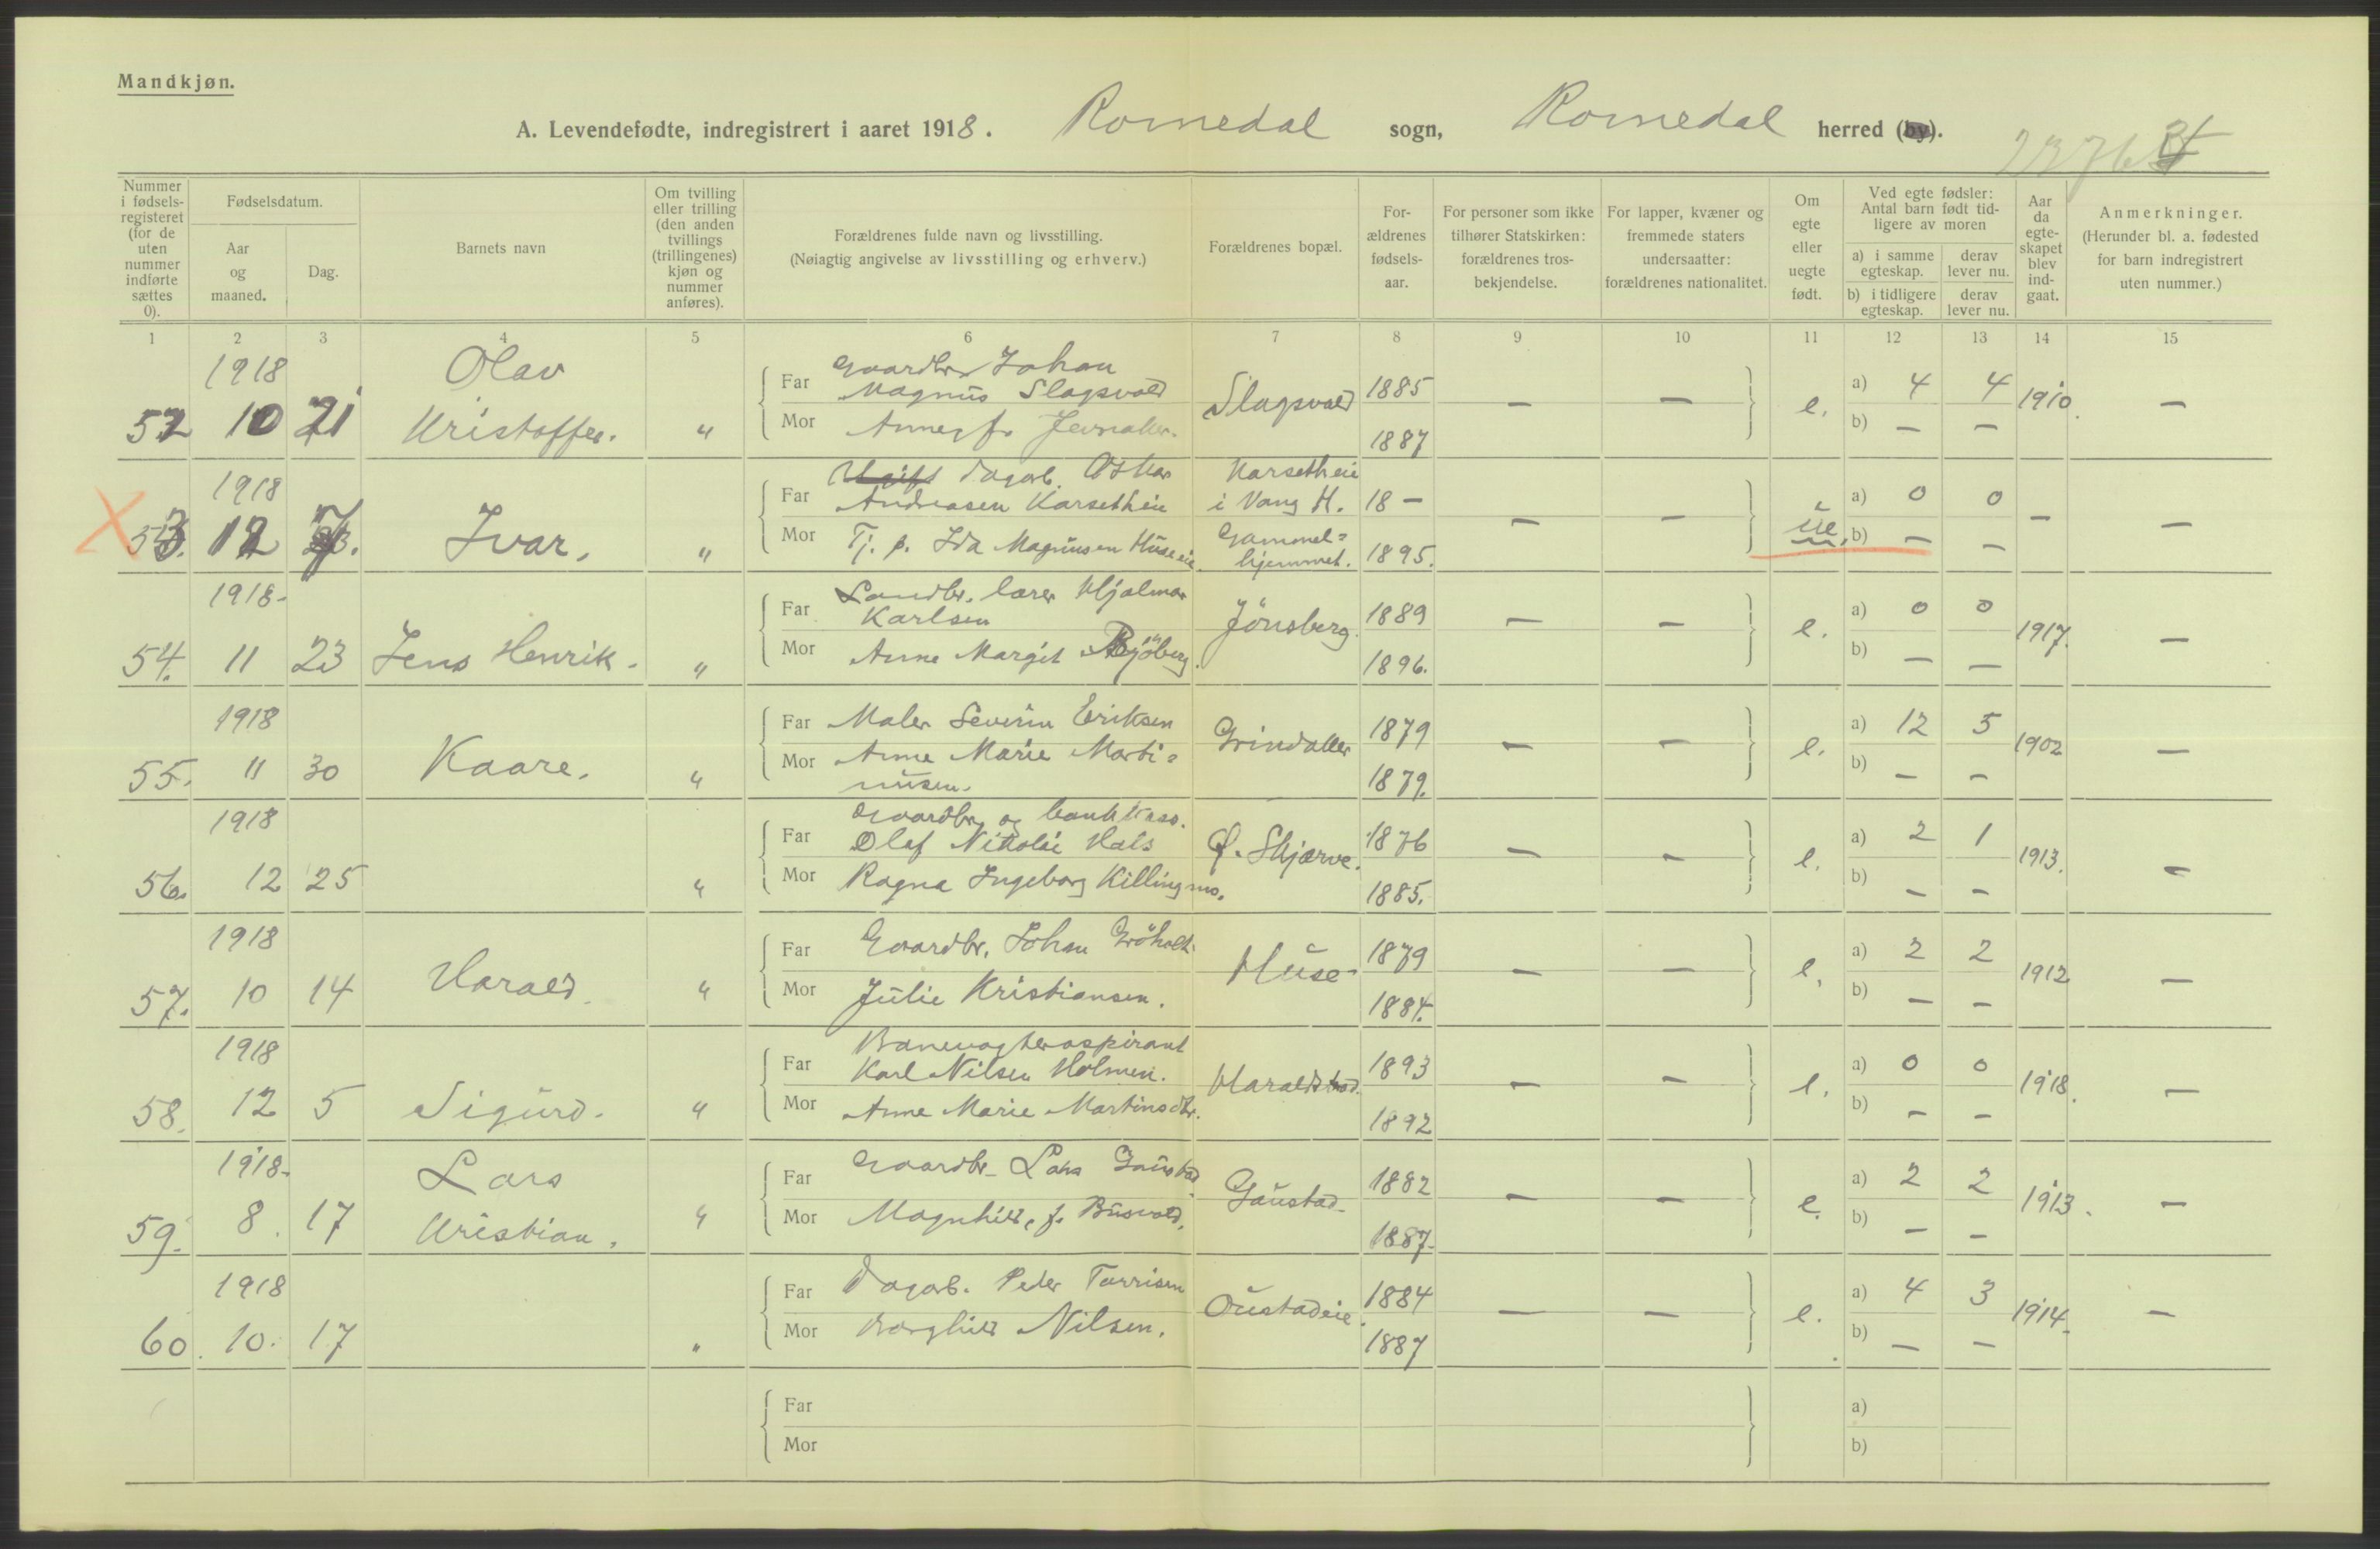 Mandkjøn.
A. Levendefødte, indregistrert i aaret 1918. Romedal sogn, Romedal herred (by).
Nummer i fødsels-registeret (for de uten nummer indførte sættes 0).
Fødselsdatum.
Aar og maaned.
Dag.
Barnets navn
Om tvilling eller trilling (den anden tvillings (trillingenes) kjøn og nummer anføres).
Forældrenes fulde navn og livsstilling.
(Nøiagtig angivelse av livsstilling og erhverv.)
Forældrenes bopæl.
For-ældrenes fødsels-aar.
For personer som ikke tilhører Statskirken: forældrenes tros-bekjendelse.
For lapper, kvæner og fremmede staters undersaatter: forældrenes nationalitet.
Om egte eller uegte født.
Ved egte fødsler: Antal barn født tid-ligere av moren
a) i samme egteskap.
derav lever nu.
b) i tidligere egteskap.
derav lever nu.
Aar da egte-skapet blev ind-gaat.
Anmerkninger.
(Herunder bl. a. fødested for barn indregistrert uten nummer.)
1 2 3 4 5 6 7 8 9 10 11 12 13 14 15
1918 Olav Far Gaardbr. Johan
Magnus Slagsvold Slagsvold 1885 — — e. a) 4 4 1910. —
52 10 21 Kristoffer. " Mor Anne, f. Jevnaker. 1887 b) — —
1918 Far Ugift dagarb. Oskar Karsetheie
Andreasen Karsetheie i Vang H. 18 — — — ue. a) 0 0 — —
53. 12 7. Ivar. " Mor Tj. p. Ida Magnusen Huseeie Gammel=
hjemmet. 1895. b) — —
1918- Far Landbr. lærer Hjalmar
Karlsen Jönsberg. 1889 — — e. a) 0 0 1917. —
54. 11 23 Jens Henrik. " Mor Anne Margit Bjöberg. 1896. b) — —
1918 Far Maler Severin Eriksen Grindaller 1879 — — e. a) 12 5 1902 —
55. 11 30 Kaare. " Mor Anne Marie Marti=
nusen. 1879. b) — —
1918 Far Gaardbr. og bankkass.
Olaf Nikolai Hals Ø. Skjærve. 1876 — — e. a) 2 1 1913. —
56. 12 25 " Mor Ragna Ingeborg Killingmo. 1885. b) — —
1918 Far Gaardbr. Johan Gröholt. Huse- 1879 — — e. a) 2 2 1912 —
57. 10 14 Harald. " Mor Julie Kristiansen. 1884. b) — —
1918 Far Banevogteraspirant
Karl Nilsen Holmen. Haraldstad. 1893 — — e. a) 0 0 1918. —
58. 12 5 Sigurd. " Mor Anne Marie Martinsdtr. 1892 b) — —
1918- Lars Far Gaardbr. Lars Gaustad Gaustad- 1882 — — e. a) 2 2 1913. —
59. 8. 17 Kristian. " Mor Magnhild, f. Busvold. 1887- b) — —
1918 Far Dagarb. Peder Torrisen Oustadeie. 1884 — — e. a) 4 3 1914- —
60. 10. 17 " Mor Borghild Nilsen. 1887 b) — —
Far a)
Mor b)